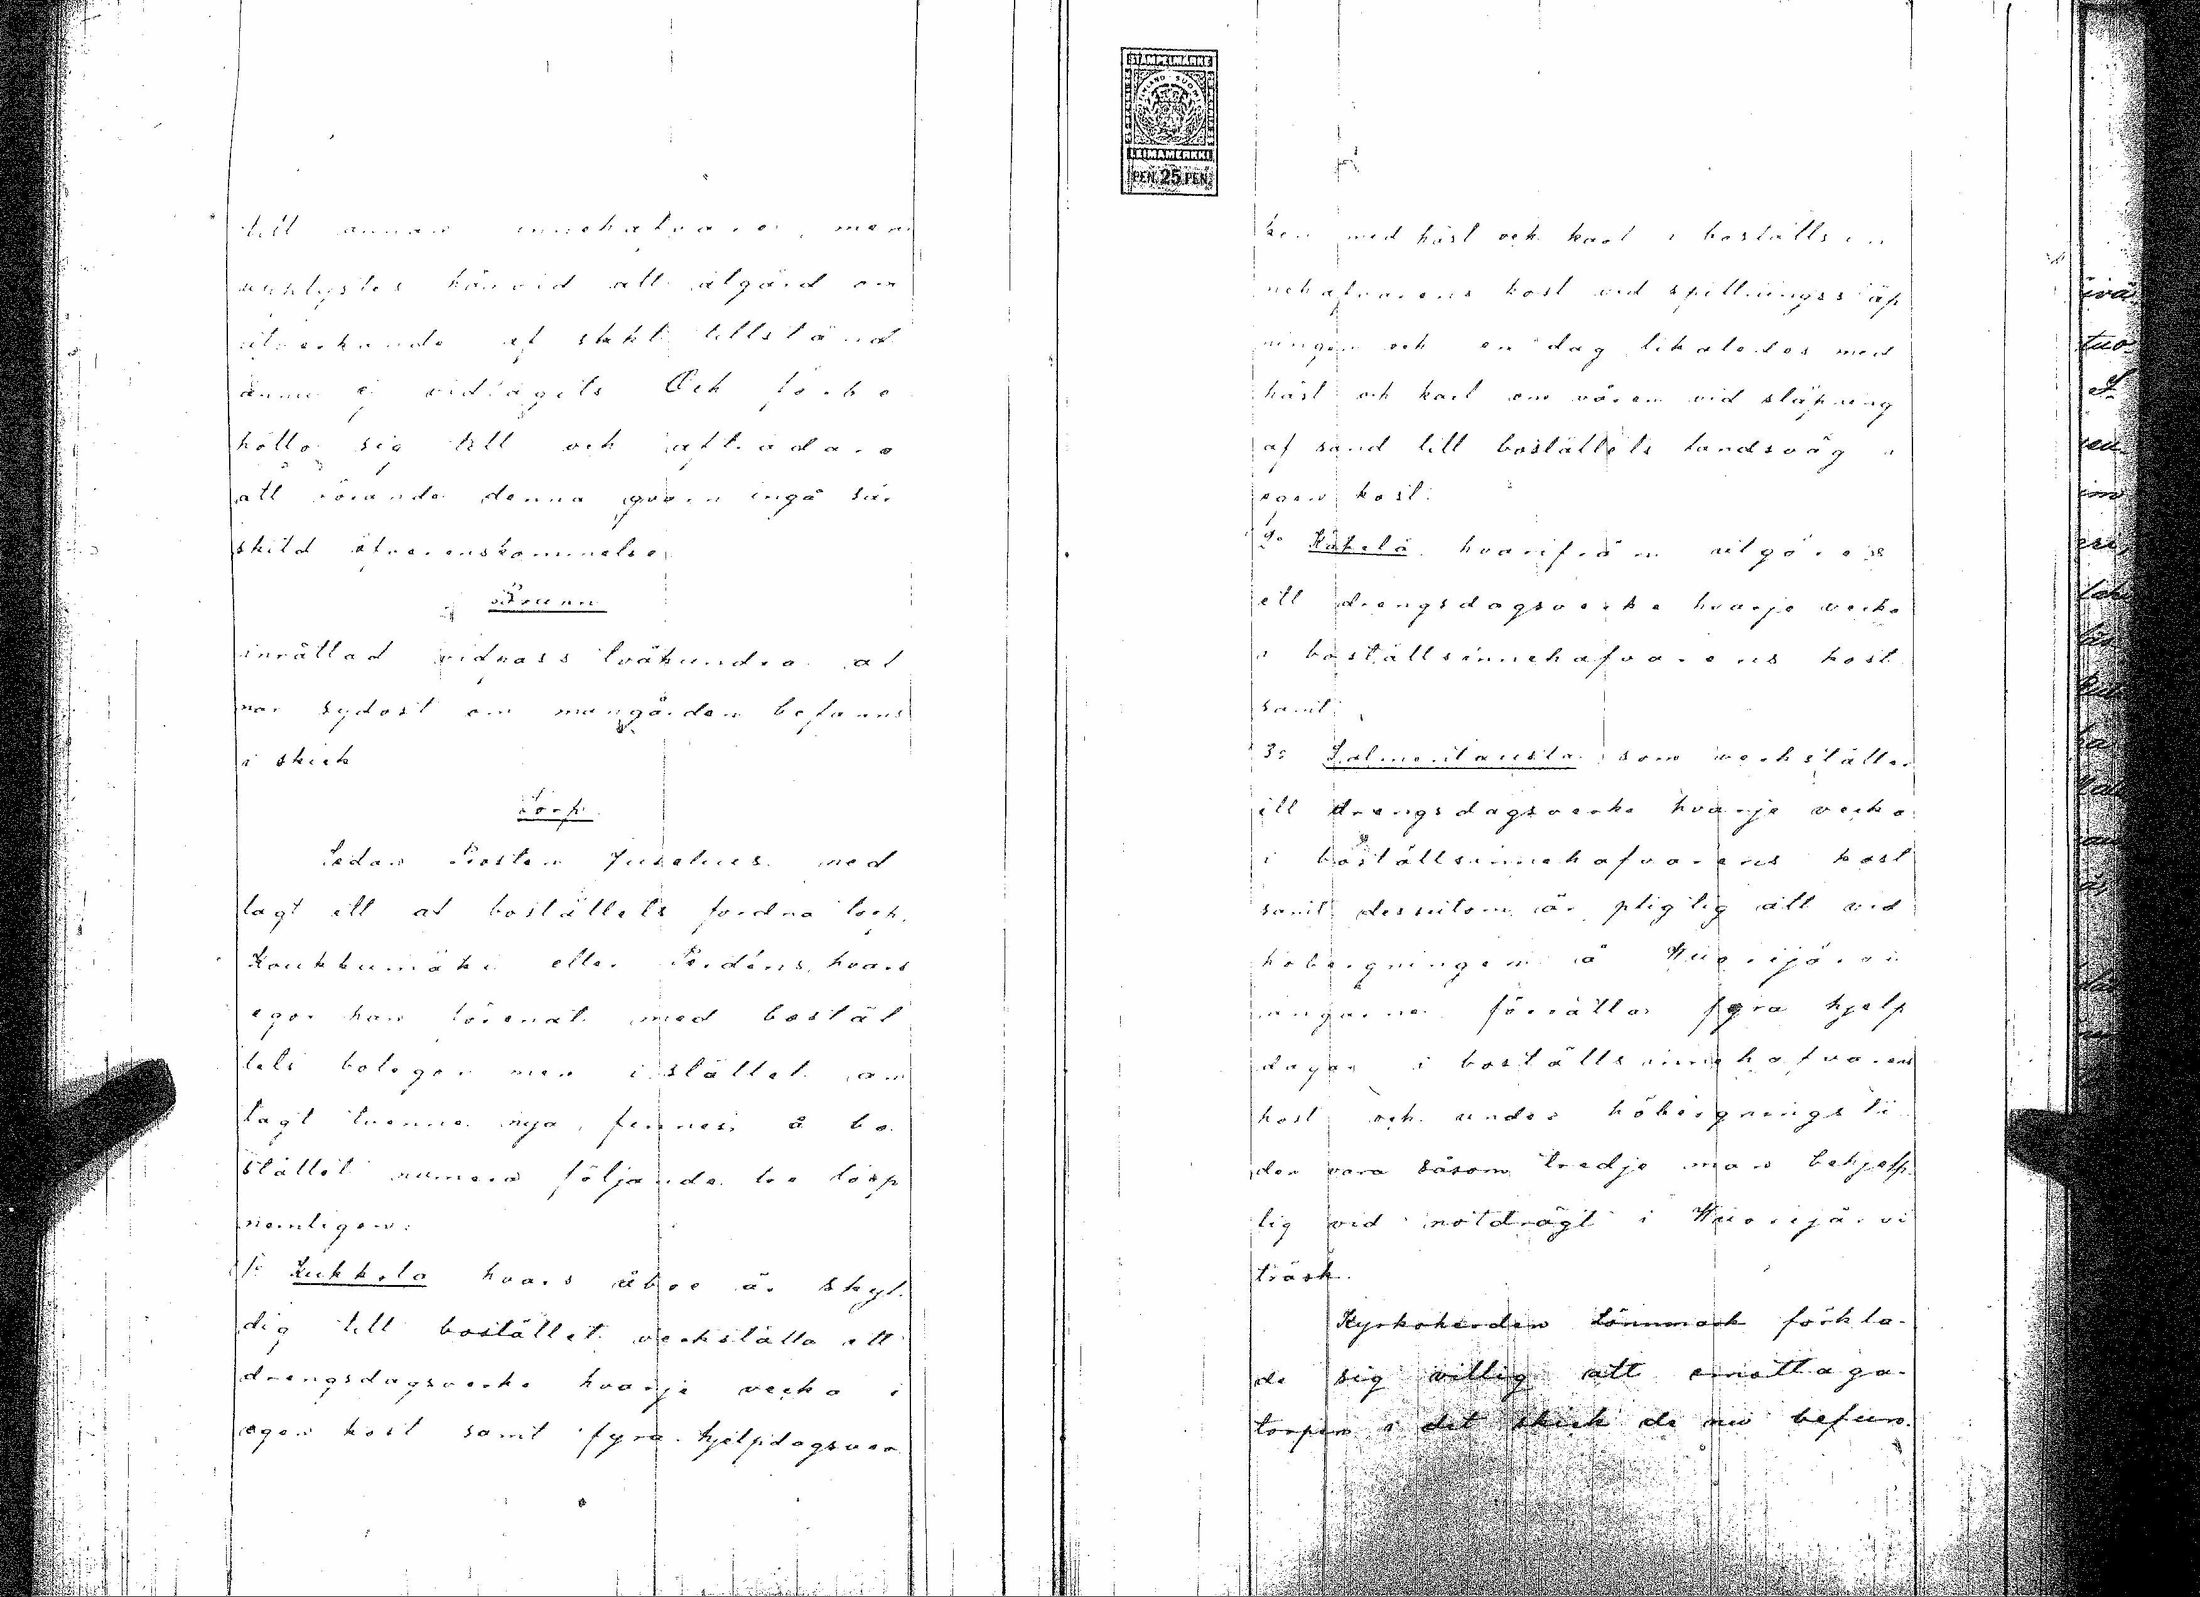 till annan innehafvare, men
upplystes härvid att åtgärd om
utverkande af slikt tillstånd
ännu ej vidtagits Och förbe
höllo sig till och afträdare
att rörande denna qvarn ingå sär
skild öfverenskommelse.
Brunn
inrättad vidpass tvåhundra al
nar sydost om mangården befanns
i skick
Torp.
Sedan Prosten Juselius med
lagt ett af boställets fordna torp,
Koukkumäki eller Perdéns, hvars
egor han förenat med bostäl
lets bolegor men i stället an
lagt tvenne nya, finnes å bo
stället numera följande tre torp
nemligen:
1o Kukkola hvars åboe är skyl
dig till bostället verkställa ett
drengsdagsverke hvarje vecka i
egen kost samt fyra hjelpdagsver
STÄMPELMÄRKE
FINLAND SUOMI
LEIMAMERKKI
PEN. 25 PEN.
ken med häst och karl i boställsin
nehafvarens kost vid spillningssläp
ningen och en dag likaledes med
häst och karl om våren vid släpning
af sand till boställets landsväg i
egen kost.
2o Käkelä hvarifrån utgöres
ett drengsdagsverke hvarje vecka
i boställsinnehafvarens kost
samt
3o Salmentausta, som verkställer
ett drengsdagsverke hvarje vecka
i boställsinnehafvarens kost
samt dessutom är pligtig att vid
höbergningen å Kuorijärvi
ängarne förrätta fyra hjelp
dagar i boställsinnehafvarens
kost och under höbergningsti
den vara såsom tredje man behjelp
lig vid notdrägt i Kuorijärvi
träsk.
Kyrkoherden Lönnmark förkla-
de sig villig att emottaga
torpen i det skick de nu befun-